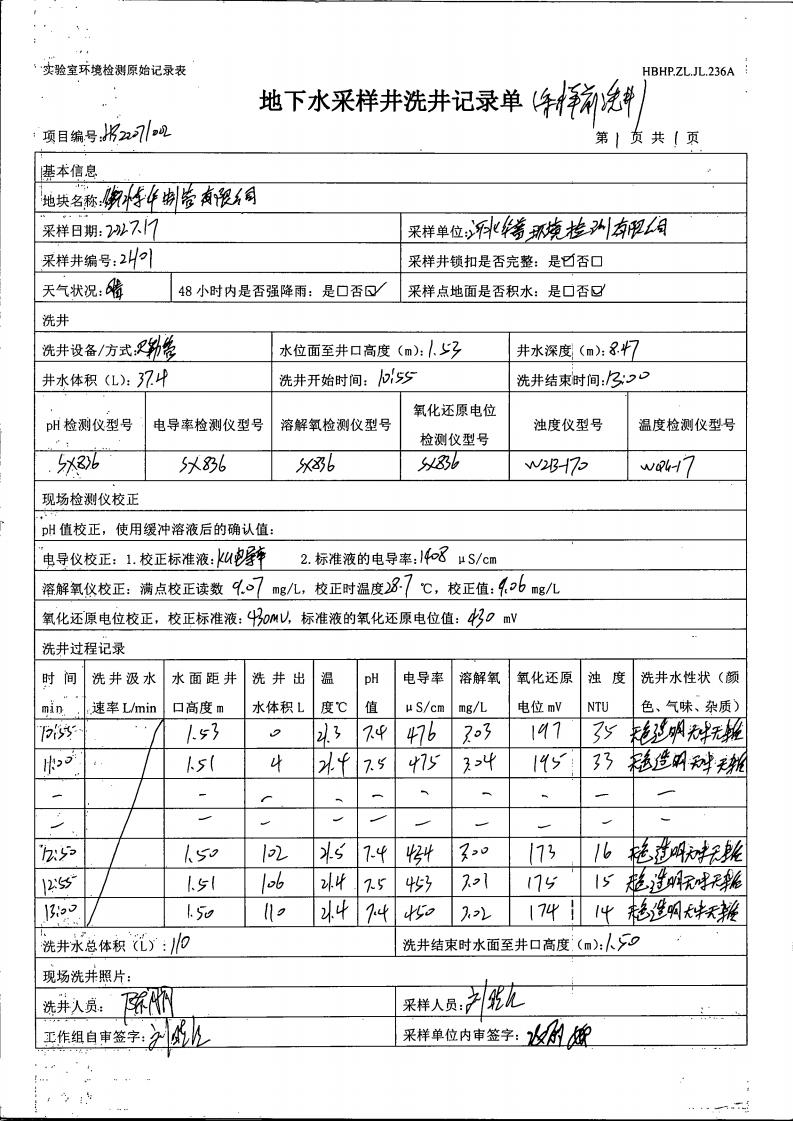 实验室环境检测原始记录表 HBHP.ZL.JL.236A
地下水采样井洗井记录单 (采样前洗井)
项目编号: 第 1 页 共 1 页
基本信息
地块名称: 制管有限公司
采样日期: 采样单位: 环境检测有限公司
采样井编号: 采样井锁扣是否完整: 是☑否□
天气状况: 晴 48 小时内是否强降雨: 是□否☑ 采样点地面是否积水: 是□否☑
洗井
洗井设备/方式: 贝勒管 水位面至井口高度 (m): 1.53 井水深度 (m): 8.47
井水体积 (L): 37.4 洗井开始时间: 10:55 洗井结束时间: 13:00
pH 检测仪型号 电导率检测仪型号 溶解氧检测仪型号 氧化还原电位检测仪型号 浊度仪型号 温度检测仪型号
SX836 SX836 SX836 SX836 WZB-170
现场检测仪校正
pH 值校正，使用缓冲溶液后的确认值:
电导仪校正: 1.校正标准液: 电导率 2.标准液的电导率: 1408 μS/cm
溶解氧仪校正: 满点校正读数 9.07 mg/L，校正时温度 28.7 ℃，校正值: 9.06 mg/L
氧化还原电位校正，校正标准液: 430mV，标准液的氧化还原电位值: 430 mV
洗井过程记录
时间 min 洗井汲水速率 L/min 水面距井口高度 m 洗井出水体积 L 温度℃ pH 值 电导率 μS/cm 溶解氧 mg/L 氧化还原电位 mV 浊度 NTU 洗井水性状（颜色、气味、杂质）
10:55 1.53 0 21.3 7.4 476 3.03 197 35 无色透明无味无杂
11:00 1.51 4 21.4 7.5 475 3.04 195 33 无色透明无味无杂
— — — — — — — — — —
— — — — — — — — — —
12:50 1.50 102 21.5 7.4 454 3.00 173 16 无色透明无味无杂
12:55 1.51 106 21.4 7.5 453 3.01 175 15 无色透明无味无杂
13:00 1.50 110 21.4 7.4 450 3.02 174 14 无色透明无味无杂
洗井水总体积 (L): 110 洗井结束时水面至井口高度 (m): 1.50
现场洗井照片:
洗井人员: 采样人员:
工作组自审签字: 采样单位内审签字: